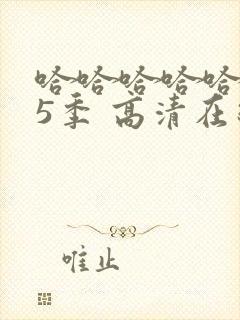 哈哈哈哈哈
5季 高清在
唯止